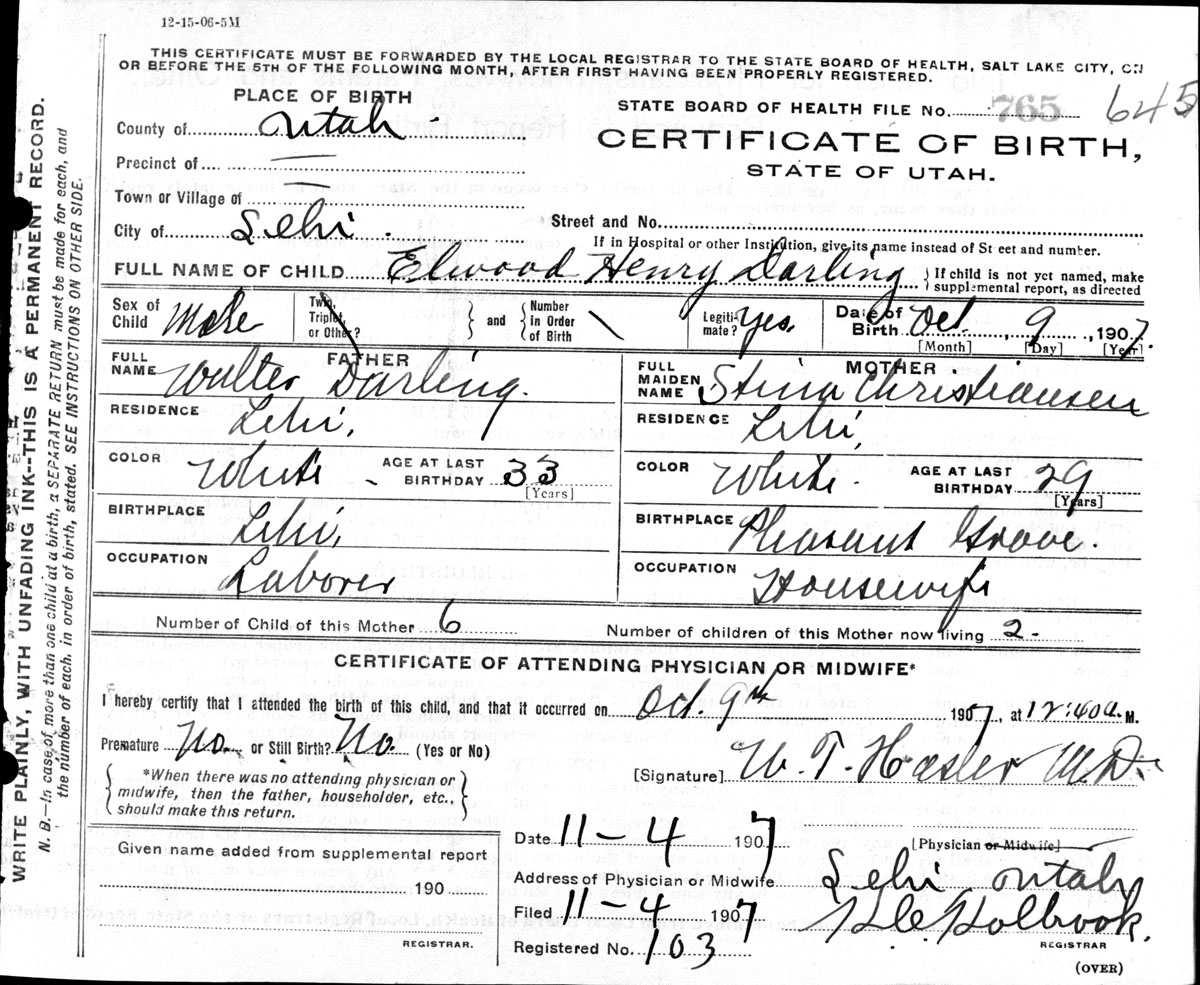 12-15-06-5M
THIS CERTIFICATE MUST BE FORWARDED BY THE LOCAL REGISTRAR TO THE STATE BOARD OF HEALTH, SALT LAKE CITY, ON
OR BEFORE THE 5TH OF THE FOLLOWING MONTH, AFTER FIRST HAVING BEEN PROPERLY REGISTERED.
WRITE PLAINLY, WITH UNFADING INK--THIS IS A PERMANENT RECORD.
N. B.—In case of more than one child at a birth, a SEPARATE RETURN must be made for each, and
the number of each, in order of birth, stated. SEE INSTRUCTIONS ON OTHER SIDE.
PLACE OF BIRTH
County of Utah
Precinct of —
Town or Village of —
City of Lehi.
STATE BOARD OF HEALTH FILE No. 765 645
CERTIFICATE OF BIRTH,
STATE OF UTAH.
Street and No.
If in Hospital or other Institution, give its name instead of Street and number.
FULL NAME OF CHILD Elwood Henry Darling } If child is not yet named, make supplemental report, as directed
Sex of Child Male Twin, Triplet, or Other? } and { Number in Order of Birth \ Legiti-mate? Yes. Date of Birth Oct 9, 1907.
[Month] [Day] [Year]
FATHER
FULL NAME Walter Darling.
RESIDENCE Lehi,
COLOR White - AGE AT LAST BIRTHDAY 33 [Years]
BIRTHPLACE Lehi,
OCCUPATION Laborer
MOTHER
FULL MAIDEN NAME Stina Christiansen
RESIDENCE Lehi,
COLOR White. AGE AT LAST BIRTHDAY 29 [Years]
BIRTHPLACE Pleasant Grove.
OCCUPATION Housewife
Number of Child of this Mother 6 Number of children of this Mother now living 2.
CERTIFICATE OF ATTENDING PHYSICIAN OR MIDWIFE*
I hereby certify that I attended the birth of this child, and that it occurred on Oct. 9th 1907, at 12:40 a. M.
Premature No. or Still Birth? No. (Yes or No)
{ *When there was no attending physician or
midwife, then the father, householder, etc.,
should make this return. }
[Signature] W. T. Hasler M.D.
[Physician or Midwife]
Given name added from supplemental report
190
REGISTRAR.
Date 11-4 1907
Address of Physician or Midwife Lehi Utah
Filed 11-4 1907 Holbrook.
REGISTRAR
Registered No. 103
(OVER)